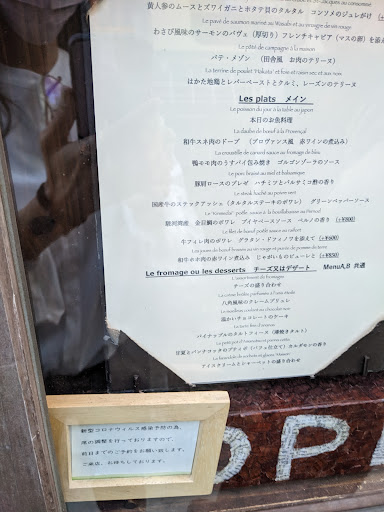 黄人参のムースとズワイガニとホタテ貝のタルタル コンソメのジュレがけ
Le pavé de saumon mariné au Wasabi et au vinaigre de
わさび風味のサーモンのパヴェ (厚切り) フレンチキャビア (マスの卵) を添
Le pâté de campagne à la maison
パテ・メゾン (田舎風 お肉のテリーヌ)
La terrine de poulet
はかた地鶏とレバーペーストとクルミ、レーズンのテリーヌ
Les plats メイン
Le poisson du jour à la table au japon
本日のお魚料理
La daube de bœuf à la Provençal
和牛スネ肉のドーブ (プロヴァンス風 赤ワインの煮込み)
La croustille de canard sauce au fromage de bleu
鴨モモ肉のうすパイ包み焼き ゴルゴンゾーラのソース
Le porc braisé au miel et balsamique
豚肩ロースのブレゼ ハチミツとバルサミコ酢の香り
Le steak haché au poivre vert
国産牛のステックアッシェ (タルタルステーキのポワレ) グリーンペッパーソース
駿河湾産 金目鯛のポワレ ブイヤベースソース ペルノの香り (+¥600)
Le filet de bœuf poêlé sauce au
牛フィレ肉のポワレ グラタン・ドフィノワを添えて (+¥600)
和牛ホホ肉の赤ワイン煮込み じゃがいものピューレと (+¥850)
Le fromage ou les desserts チーズ又はデザート MenuA,B 共通
L'assortiment de fromages
チーズの盛り合わせ
八角風味のクレームブリュレ
Le moelleux au chocolat
温かいチョコレートのケーキ
パイナップルのタルトフィーヌ (薄焼きタルト)
アイスクリームとシャーベットの盛り合わせ
新型コロナウィルス感染予防の為、
席の調整を行っておりますので、
前日までのご予約をお願い致します。
ご来店、お待ちしております。
OPE